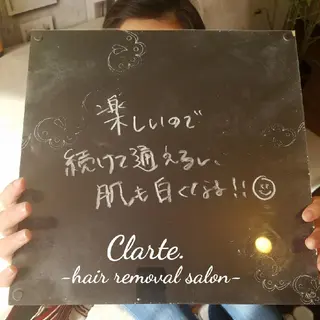 楽しいので
続けて通えるし、
肌も白くなる!!
Clarte.
-hair removal salon-